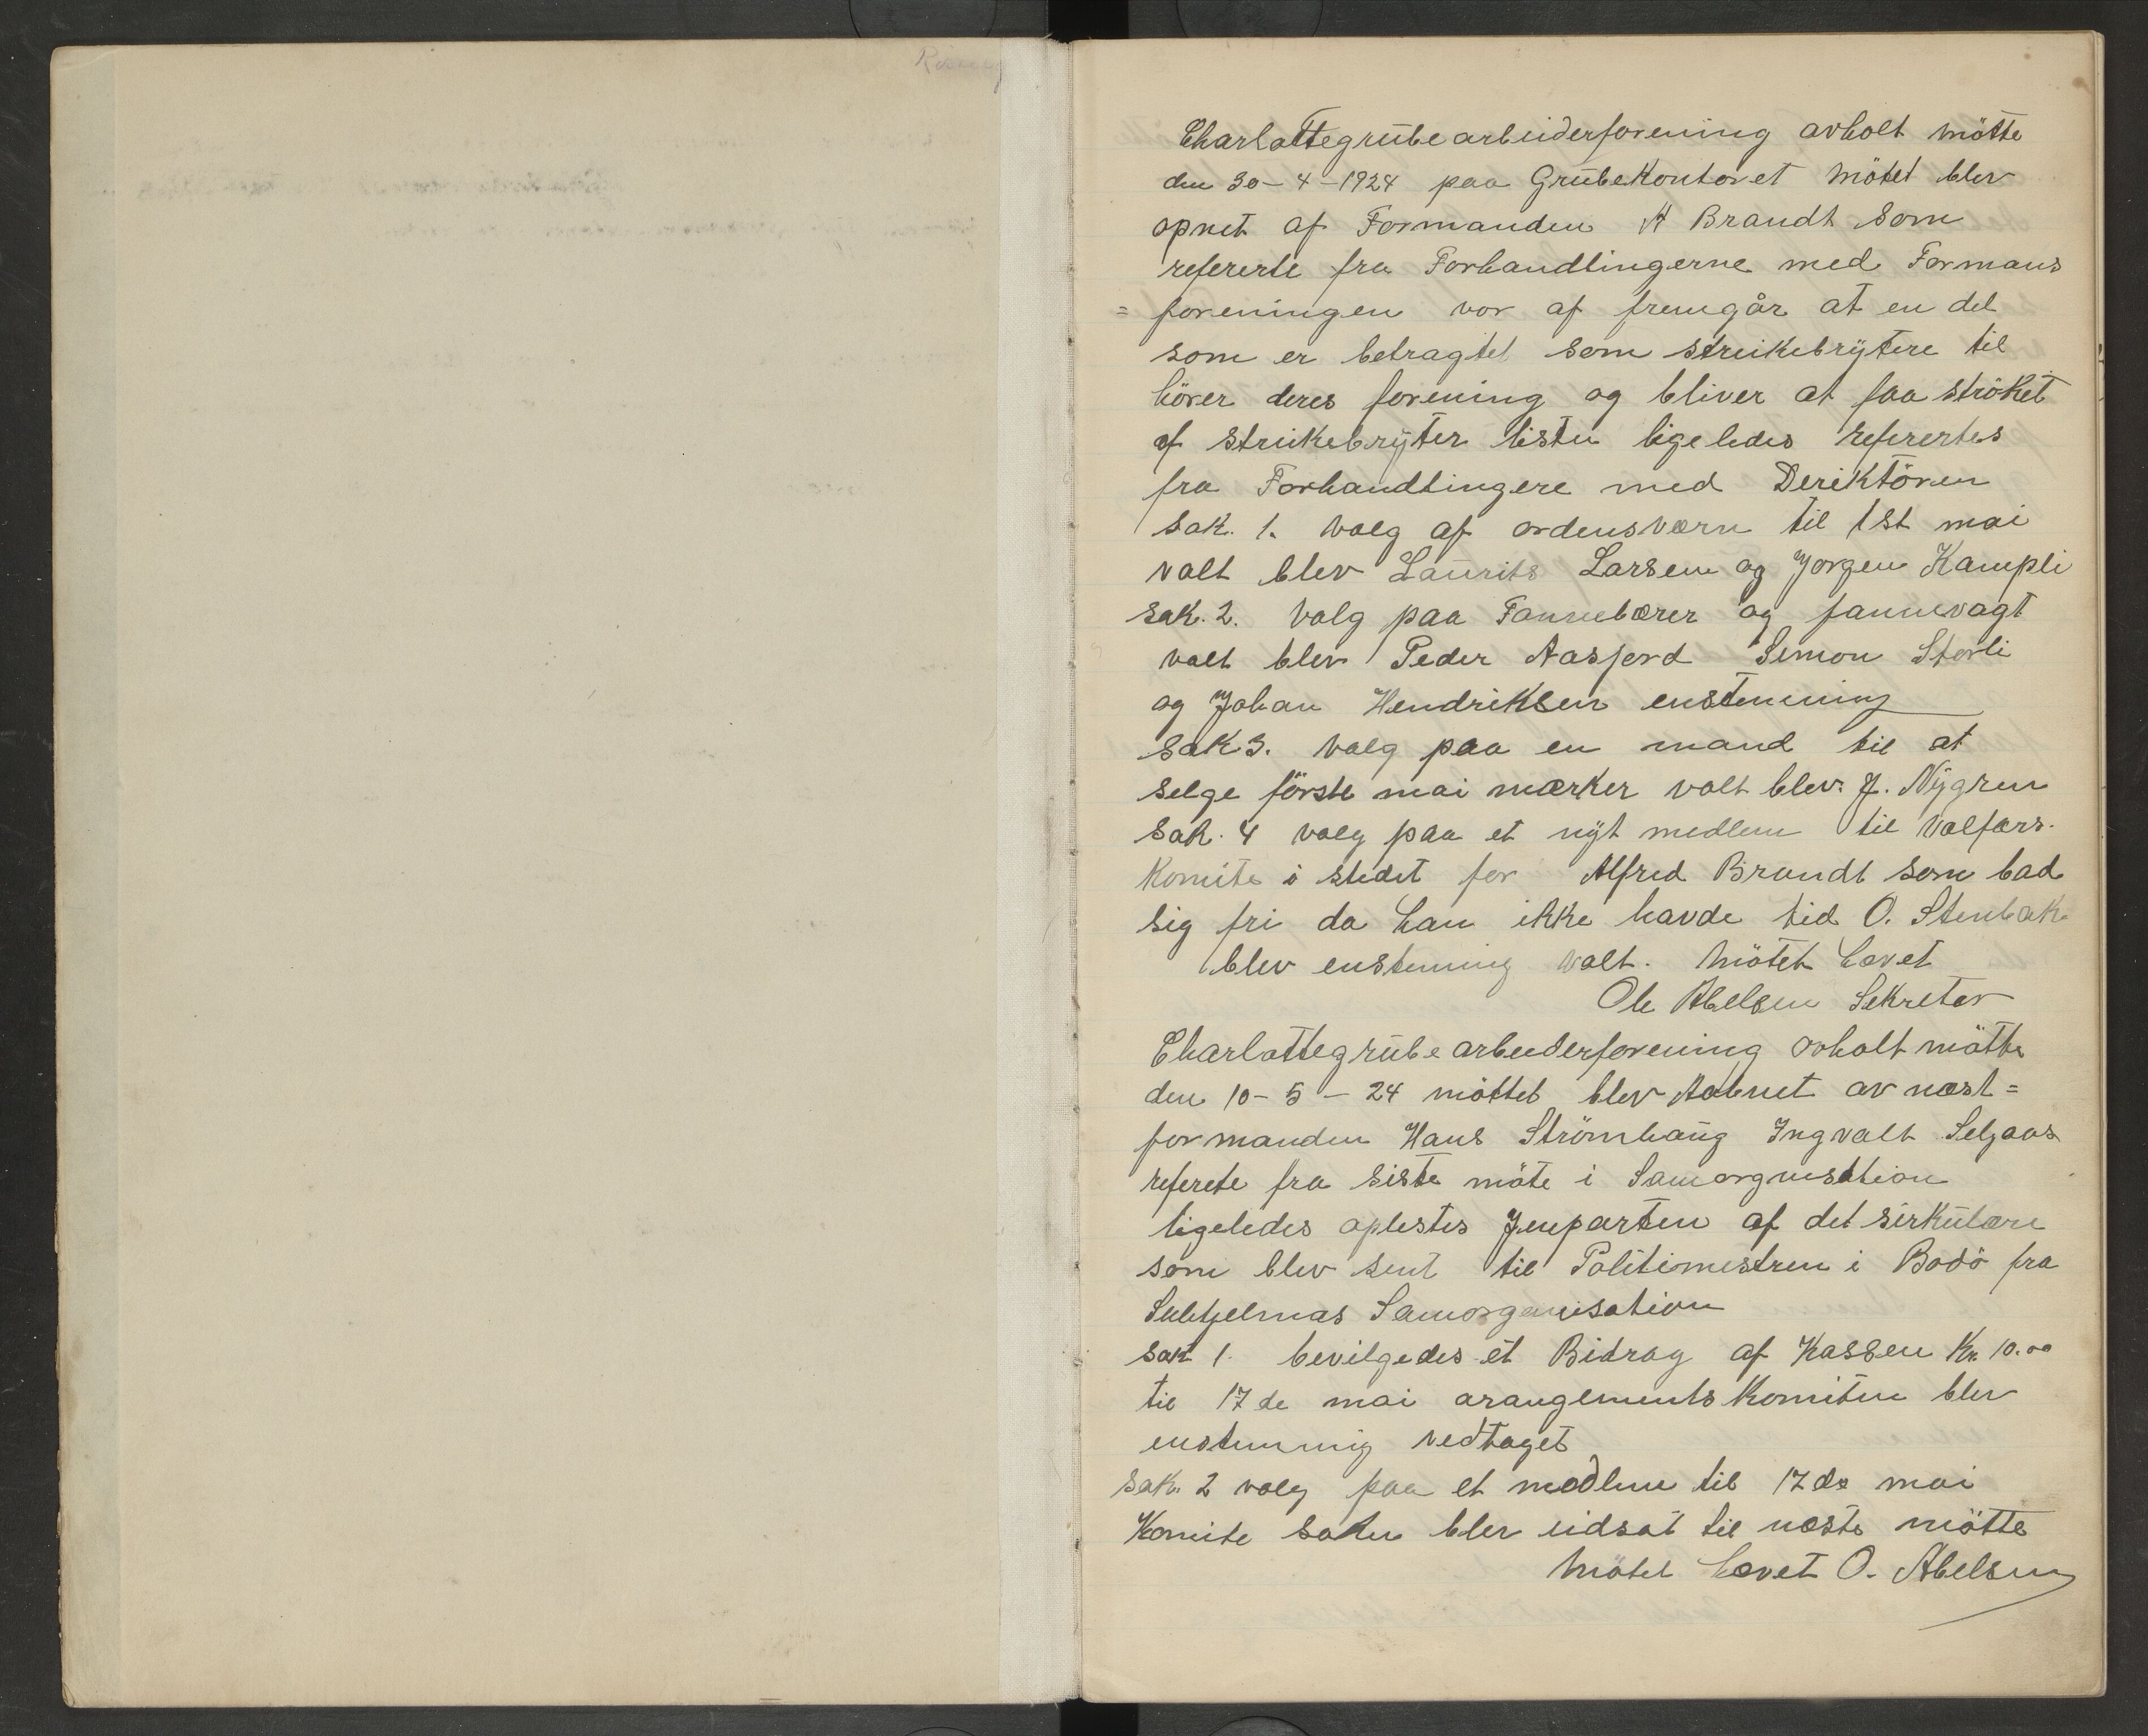 Charlottegrübearbeiderforening avholt mötte
den 30-4-1924 paa Grübekontoret mötet blev
opnet af Formanden A Brandt som
refererte fra Forhandlingerne med Formans
= foreningen vor af fremgår at en del
som er betragtet som streikebrÿtere til
hörer deres forening og bliver at faa ströket
af streikebrÿter listen ligeledes referertes
fra Forhandlingere med Deriktören
sak. 1. valg af ordensværn til 1st mai
valt blev Laurits Larsen og Jorgen Kampli
sak. 2. valg paa Fannebærer og fannevagt
valt blev Peder Aasjord Simon Storli
og Johan Hendriksen enstemmig
sak 3. valg paa en mand til at
selge förste mai mærker valt blev J. Nÿgren
sak. 4 valg paa et nÿt medlem til Valfærs-
komite i stedet for Alfred Brandt som bad
sig fri da han ikke havde tid O. Stenbak
blev enstemmig valt. Mötet hævet
Ole Abelsen Sekretær
Charlottegrübearbeiderforening avholt mötte
den 10-5-24 möttet blev Aabnet av næst=
formanden Hans Strömhaug Ingvalt Seljaas
referete fra siste möte i Samorgnisation
ligeledes oplestes Jenparten af det sirkülære
som blev sent til Politimestren i Bodö fra
Sulitjelmas Samorganisation
sak 1. bevilgedes et Bidrag af Kassen Kr. 10.00
til 17de mai arangementskomiteen blev
enstemmig vedtaget
sak. 2 valg paa et medlem til 17de mai
Komite saken blev üdsat til næste mötte
Mötet hævet O. Abelsen